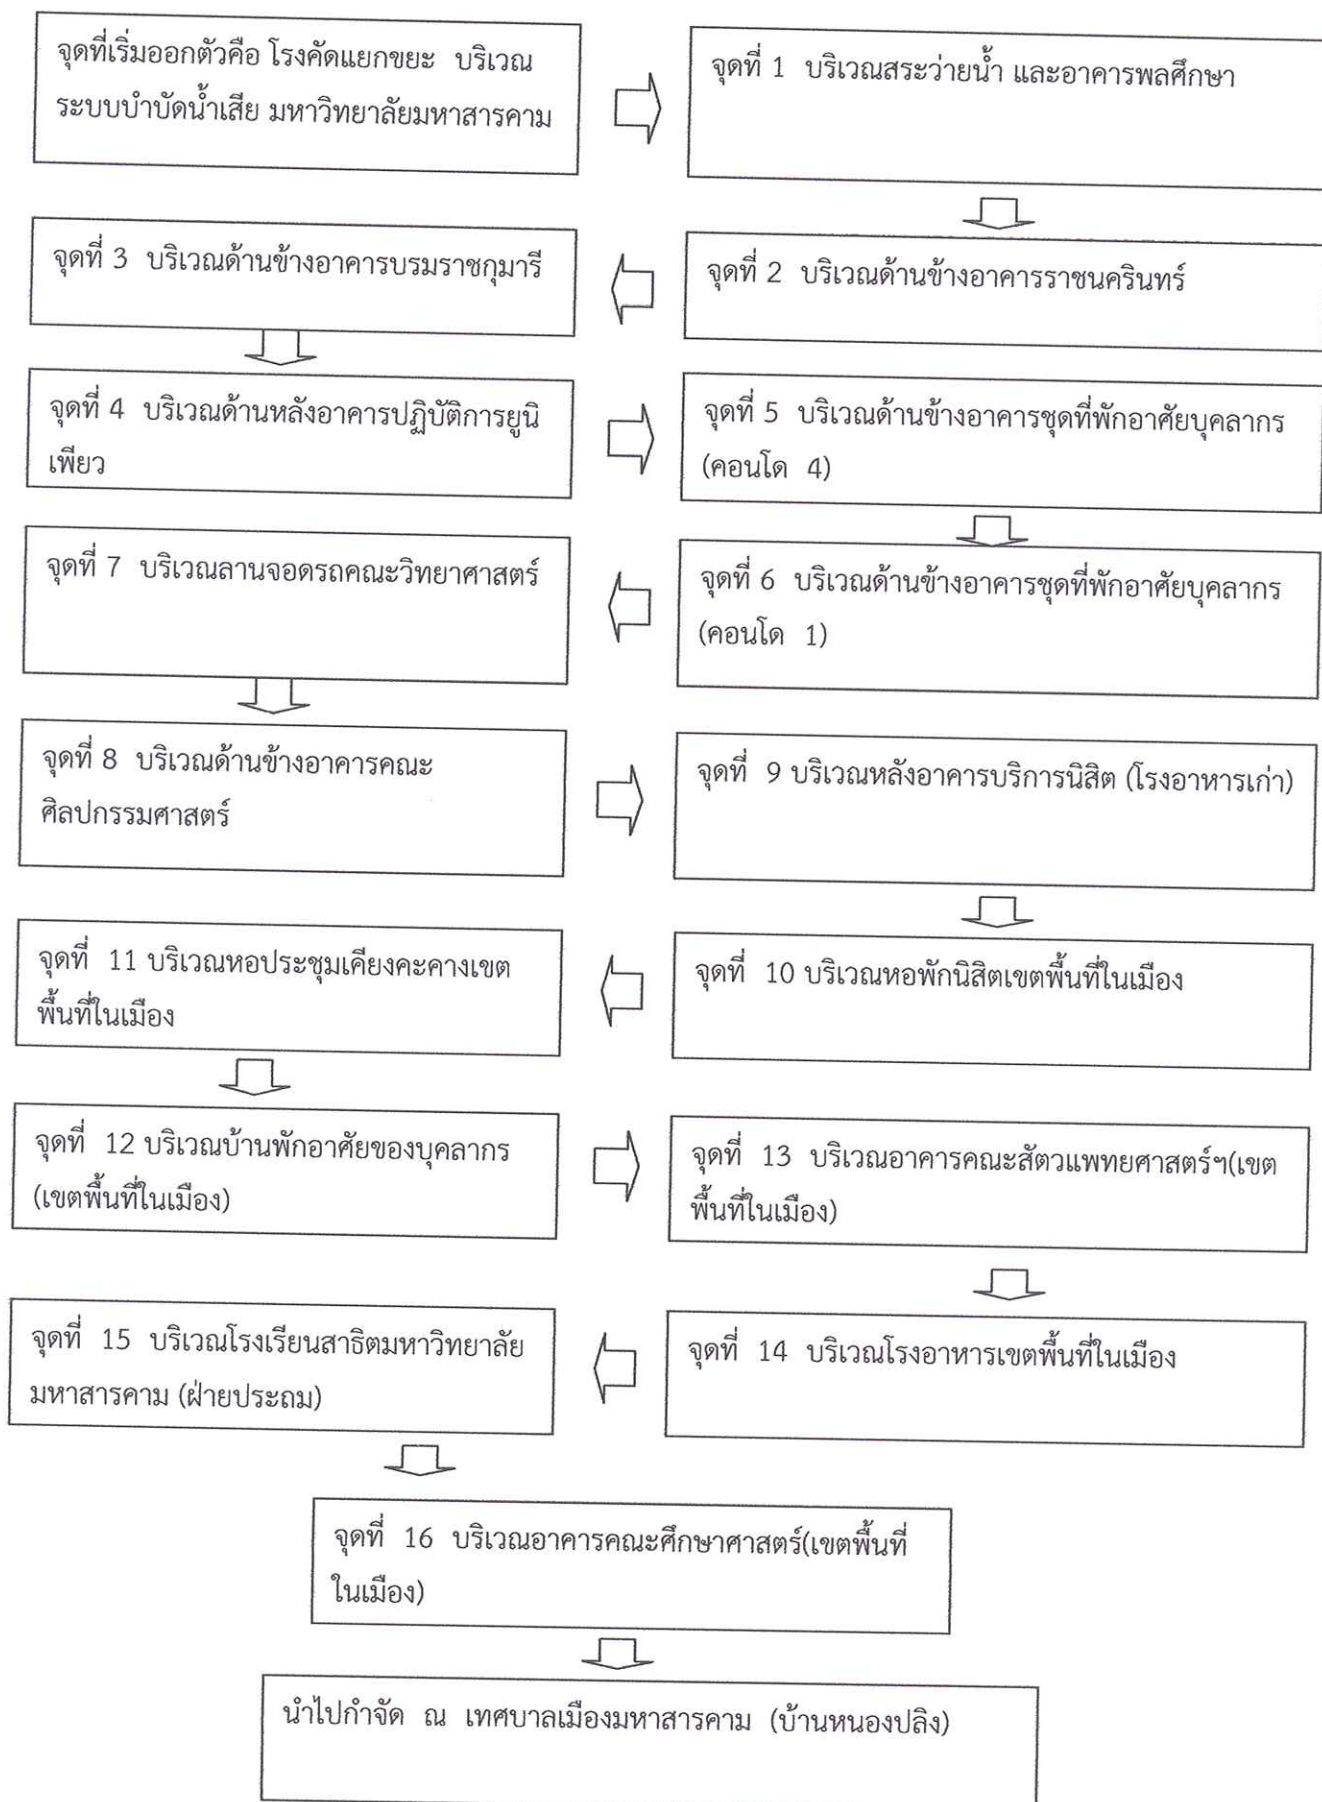 จุดที่เริ่มออกตัวคือ โรงคัดแยกขยะ บริเวณ
ระบบบำบัดน้ำเสีย มหาวิทยาลัยมหาสารคาม
จุดที่ 1 บริเวณสระว่ายน้ำ และอาคารพลศึกษา
จุดที่ 2 บริเวณด้านข้างอาคารราชนครินทร์
จุดที่ 3 บริเวณด้านข้างอาคารบรมราชกุมารี
จุดที่ 4 บริเวณด้านหลังอาคารปฏิบัติการยูนิ
เพียว
จุดที่ 5 บริเวณด้านข้างอาคารชุดที่พักอาศัยบุคลากร
(คอนโด 4)
จุดที่ 6 บริเวณด้านข้างอาคารชุดที่พักอาศัยบุคลากร
(คอนโด 1)
จุดที่ 7 บริเวณลานจอดรถคณะวิทยาศาสตร์
จุดที่ 8 บริเวณด้านข้างอาคารคณะ
ศิลปกรรมศาสตร์
จุดที่ 9 บริเวณหลังอาคารบริการนิสิต (โรงอาหารเก่า)
จุดที่ 10 บริเวณหอพักนิสิตเขตพื้นที่ในเมือง
จุดที่ 11 บริเวณหอประชุมเคียงคะคางเขต
พื้นที่ในเมือง
จุดที่ 12 บริเวณบ้านพักอาศัยของบุคลากร
(เขตพื้นที่ในเมือง)
จุดที่ 13 บริเวณอาคารคณะสัตวแพทยศาสตร์ฯ(เขต
พื้นที่ในเมือง)
จุดที่ 14 บริเวณโรงอาหารเขตพื้นที่ในเมือง
จุดที่ 15 บริเวณโรงเรียนสาธิตมหาวิทยาลัย
มหาสารคาม (ฝ่ายประถม)
จุดที่ 16 บริเวณอาคารคณะศึกษาศาสตร์(เขตพื้นที่
ในเมือง)
นำไปกำจัด ณ เทศบาลเมืองมหาสารคาม (บ้านหนองปลิง)